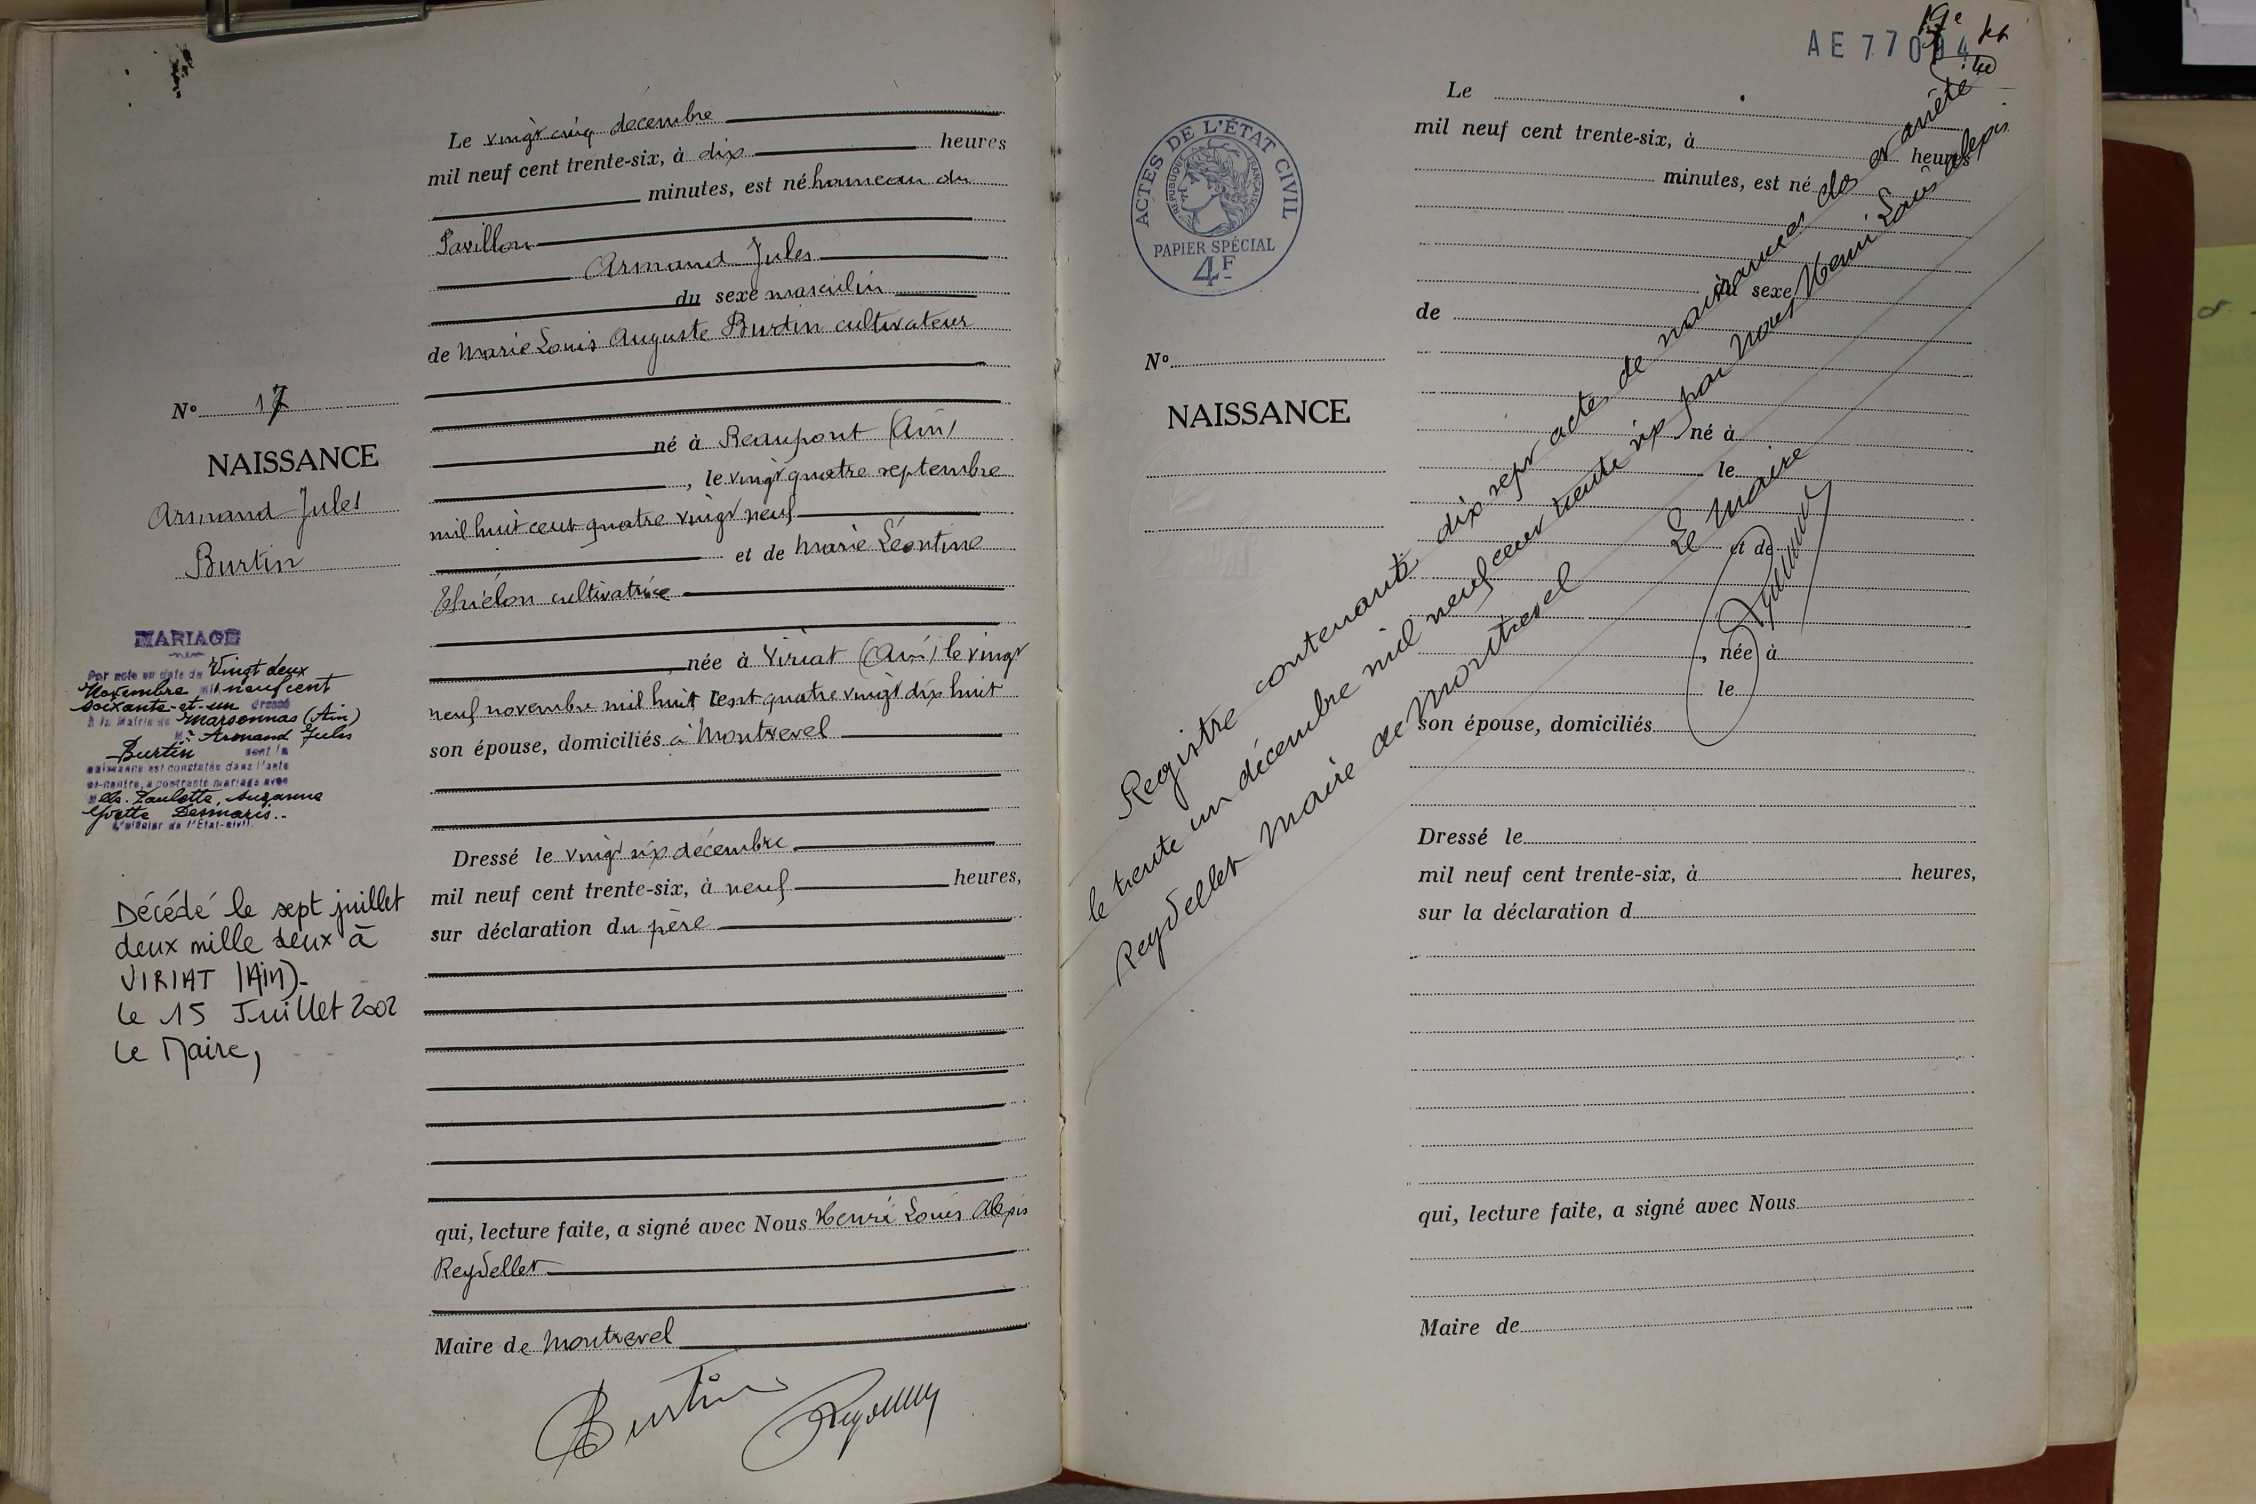 Le vingt cinq décembre
mil neuf cent trente-six, à dix heures
minutes, est né hameau du
Pavillon
Armand Jules
du sexe masculin
de Marie Louis Auguste Burtin cultivateur
né à Beaupont (Ain)
, le vingt quatre septembre
mil huit cent quatre vingt neuf
et de Marie Léontine
cultivatrice
née à Viriat (Ain) le vingt
neuf novembre mil huit cent quatre vingt dix huit
son épouse, domiciliés à Montrevel
Dressé le vingt six décembre
mil neuf cent trente-six, à neuf heures,
sur déclaration du père
qui, lecture faite, a signé avec Nous Henri Louis Alexis
Reydellet
Maire de Montrevel
Burtin
No 17
NAISSANCE
Armand Jules
Burtin
MARIAGE
Par note en date du Vingt deux
Novembre mil neuf cent
soixante-et-un dressé
à la Mairie de Marsonnas (Ain)
Mr Armand Jules
Burtin dont la
naissance est constatée dans l'acte
ci-contre, a contracté mariage avec
Mlle Paulette, Suzanne
Yvette Desmaris..
L'officier de l'Etat-civil.
Décédé le sept juillet
deux mille deux à
VIRIAT (AIN)-
Le 15 Juillet 2002
Le Maire,
AE 77094
19e
ACTES DE L'ÉTAT CIVIL
RÉPUBLIQUE FRANÇAISE
PAPIER SPÉCIAL
4F
No
NAISSANCE
Le
mil neuf cent trente-six, à heures
minutes, est né
du sexe
de
né à
le
et de
, née à
le
son épouse, domiciliés
Dressé le
mil neuf cent trente-six, à heures,
sur la déclaration d
qui, lecture faite, a signé avec Nous
Maire de
Registre contenant dix sept actes de naissances clos et arrêté
le trente un décembre mil neuf cent trente six par Nous Henri Louis Alexis
Reydellet Maire de Montrevel
Le Maire